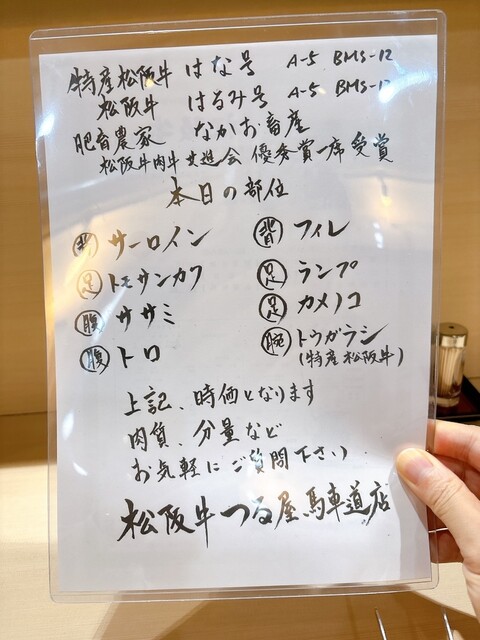 特産松阪牛 はな号 A-5 BMS-12
松阪牛 はるみ号 A-5 BMS-12
肥育農家 なかお畜産
松阪牛肉牛共進会 優秀賞一席受賞
本日の部位
背 サーロイン
背 フィレ
足 トモサンカク
足 ランプ
腹 ササミ
足 カメノコ
腹 トロ
腕 トウガラシ
(特産松阪牛)
上記、時価となります
肉質、分量など
お気軽にご質問下さい
松阪牛つる屋馬車道店